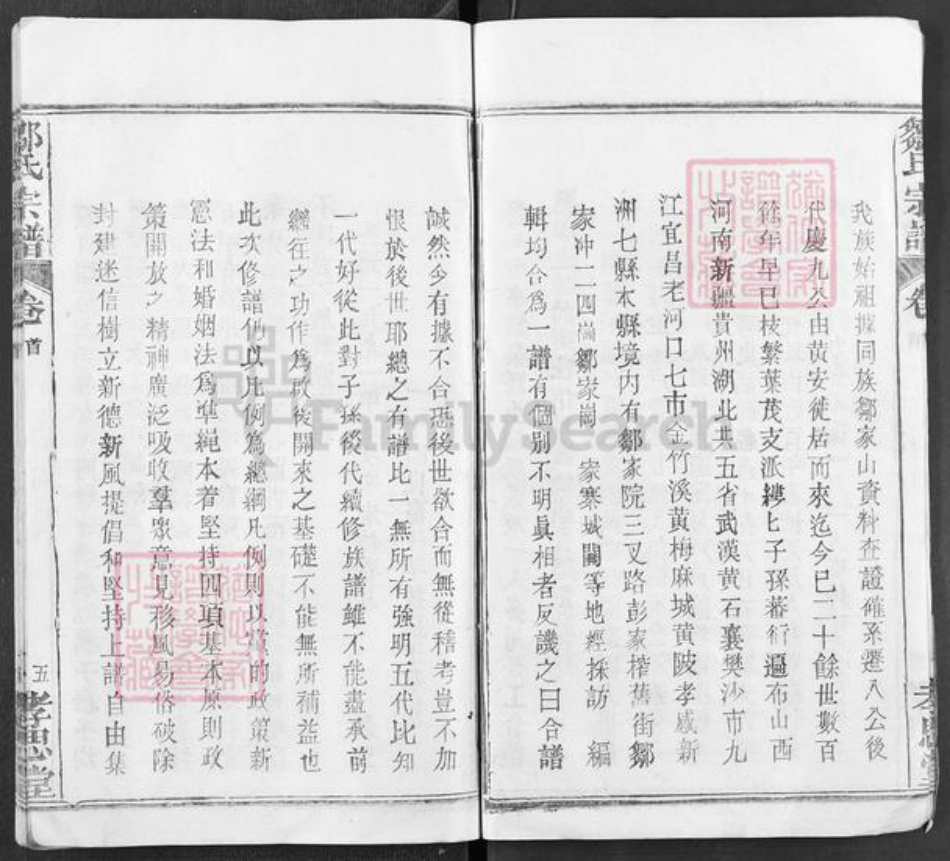 鄒氏宗譜
卷
我族始祖據同族鄒家山資料查證確系遷入八公後
代慶九公由黃安徙居而來迄今已二十餘世數百
餘年早已枝繁葉茂支派縷匕子孫蕃衍遍布山西
河南新疆貴州湖北共五省武漢黃石襄樊沙市九
江宜昌老河口七市金竹溪黃梅麻城黄陂孝感新
洲七縣本縣境内有鄒家院三叉路彭家榨舊街鄒
家冲二四崗鄒家崗 家寨城關等地經採訪 編
輯均合為一譜有個别不明眞相者反譏之曰合譜
誠然今有據不合恐後世欲合而無從稽考豈不加
恨於後世耶總之有譜比一無所有強明五代比知
一代好從此對子孫後代續修族譜雖不能盡承前
繼往之功作為啟後開來之基礎不能無所補益也
此次修譜仍以凡例為總綱凡例則以黨的政策新
憲法和婚姻法為準繩本着堅持四項基本原則政
策開放之精神廣泛吸收羣眾意見移風易俗破除
封建迷信樹立新德新風提倡和堅持上譜自由集
鄒氏宗譜
卷首
五
孝思堂
FamilySearch